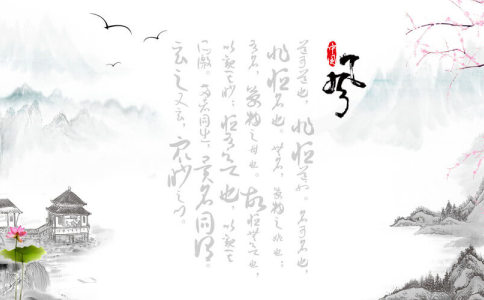 中国
风
道可道也，非恒道也。名可名也，
非恒名也。無名，萬物之始也；
有名，萬物之母也。故恒無欲也，
以觀其妙；恒有欲也，以觀其
所徼。两者同出，異名同謂。
玄之又玄，衆妙之门。